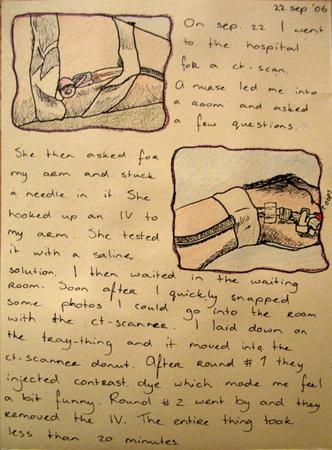 22 sep '06
On sep. 22 I went
to the hospital
for a ct-scan.
A nurse led me into
a room and asked
a few questions.
She then asked for
my arm and stuck
a needle in it. She
hooked up an IV to
my arm. She tested
it with a saline
solution. I then waited in the waiting
room. Soon after I quickly snapped
some photos I could go into the room
with the ct-scanner. I laid down on
the tray-thing and it moved into the
ct-scanner donut. After Round #1 they
injected contrast dye which made me feel
a bit funny. Round #2 went by and they
removed the IV. The entire thing took
less than 20 minutes.